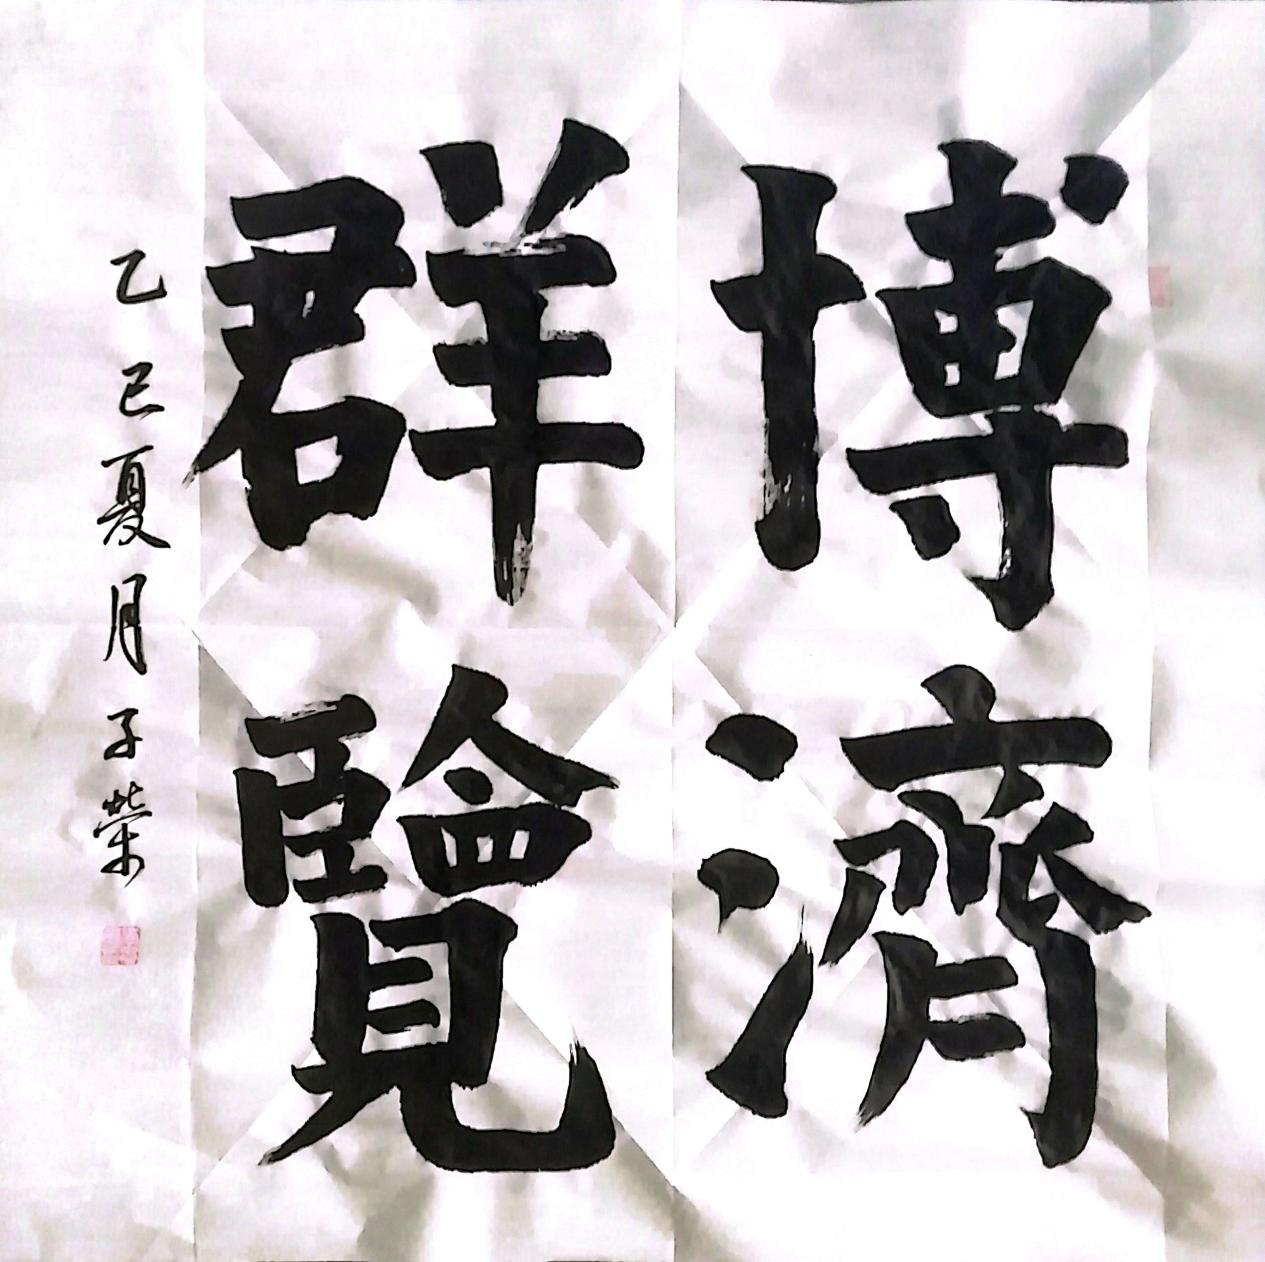 博濟
群覽
乙巳夏月子榮